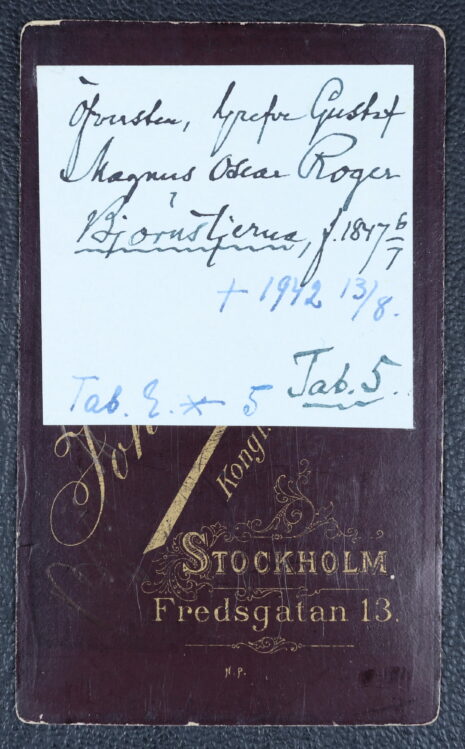 Öfversten, Grefve Gustaf
Magnus Oscar Roger
Björnstjerna, f. 1847 6/7
+ 1942 13/8.
Tab. 5.
Tab. E. * 5
Joh
Kongl.
STOCKHOLM.
Fredsgatan 13.
N.P.